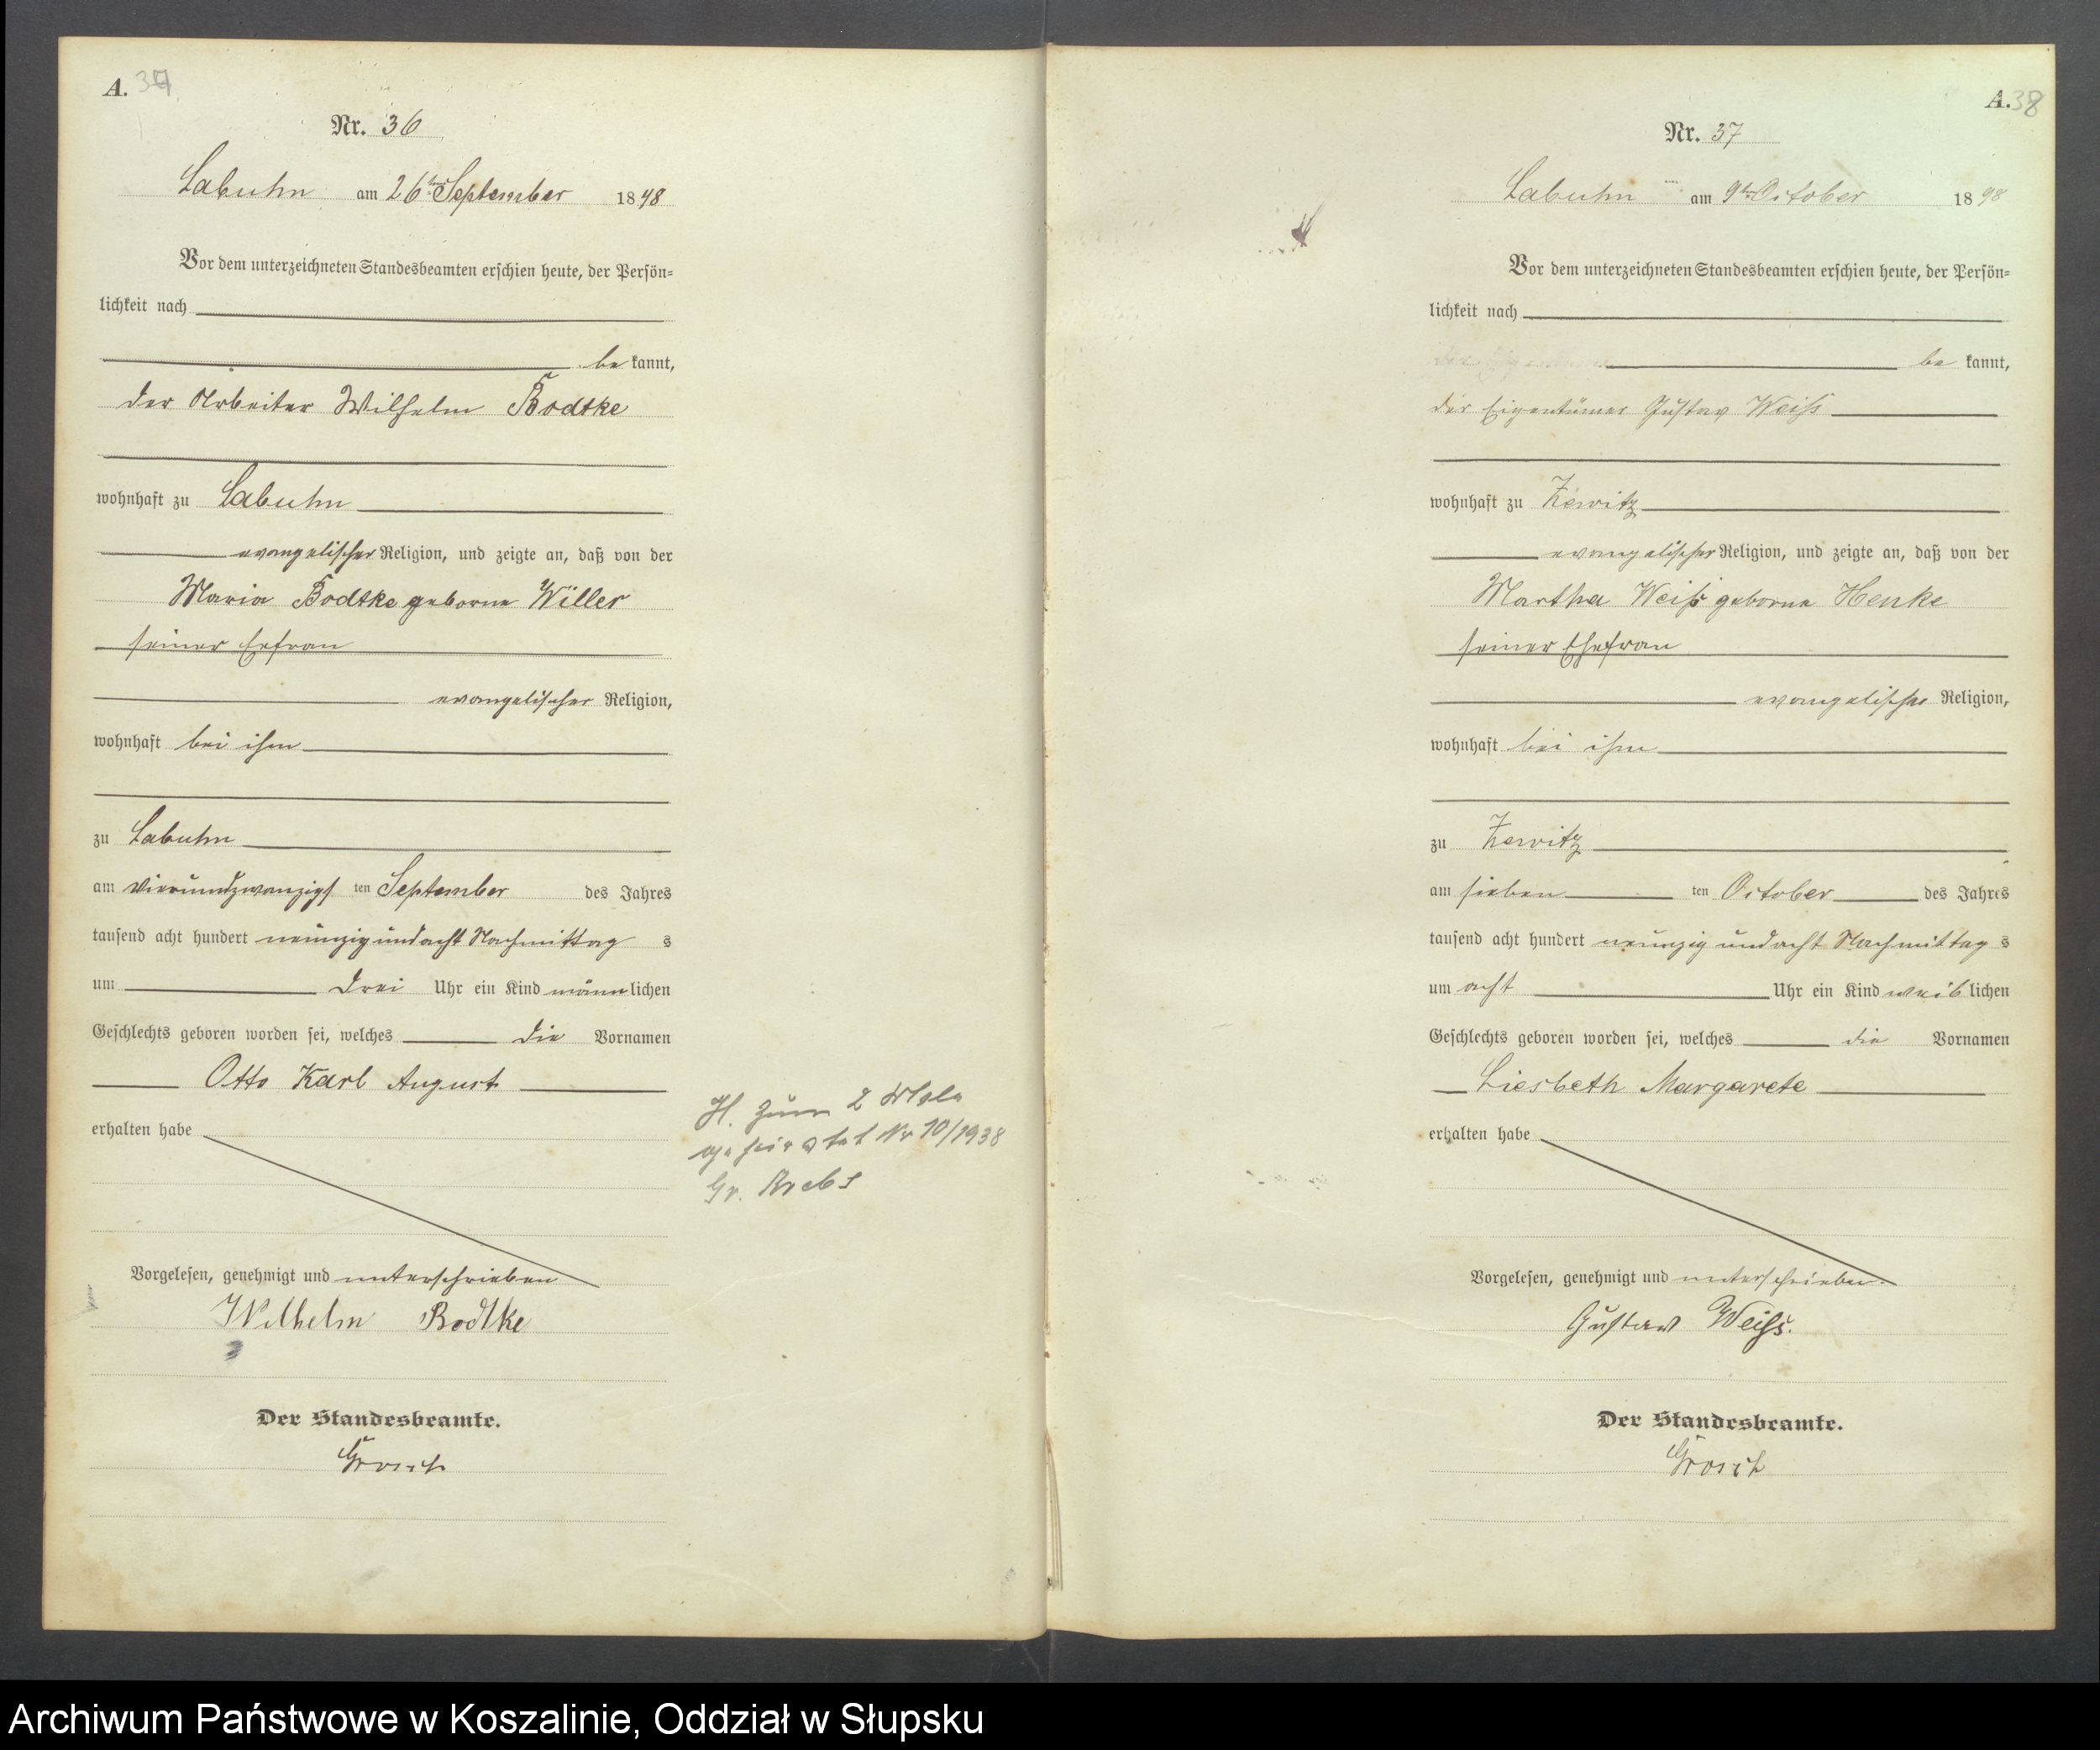 A. 37
Nr. 36
Labuhn am 26ten September 1898
Vor dem unterzeichneten Standesbeamten erschien heute, der Persön=
lichkeit nach
be kannt,
der Arbeiter Wilhelm Bodtke
wohnhaft zu Labuhn
evangelischer Religion, und zeigte an, daß von der
Maria Bodtke geborne Willer
seiner Ehefrau
evangelischer Religion,
wohnhaft bei ihm
zu Labuhn
am vierundzwanzigs ten September des Jahres
tausend acht hundert neunzig und acht Nachmittag s
um drei Uhr ein Kind männ lichen
Geschlechts geboren worden sei, welches die Vornamen
Otto Karl August
erhalten habe
Vorgelesen, genehmigt und unterschrieben
Wilhelm Bodtke
Der Standesbeamte.
Grosch
H. Zum 2 Male
geheiratet Nr 10/1938
Gr. Krebs
A. 38
Nr. 37
Labuhn am 9ten October 1898
Vor dem unterzeichneten Standesbeamten erschien heute, der Persön=
lichkeit nach
be kannt,
der Eigentümer Gustav Weiß
wohnhaft zu Zewitz
evangelischer Religion, und zeigte an, daß von der
Martha Weiß geborne Henke
seiner Ehefrau
evangelischer Religion,
wohnhaft bei ihm
zu Zewitz
am sieben ten October des Jahres
tausend acht hundert neunzig und acht Nachmittag s
um acht Uhr ein Kind weib lichen
Geschlechts geboren worden sei, welches die Vornamen
Liesbeth Margarete
erhalten habe
Vorgelesen, genehmigt und unterschrieben.
Gustav Weiß.
Der Standesbeamte.
Grosch
Archiwum Państwowe w Koszalinie, Oddział w Słupsku